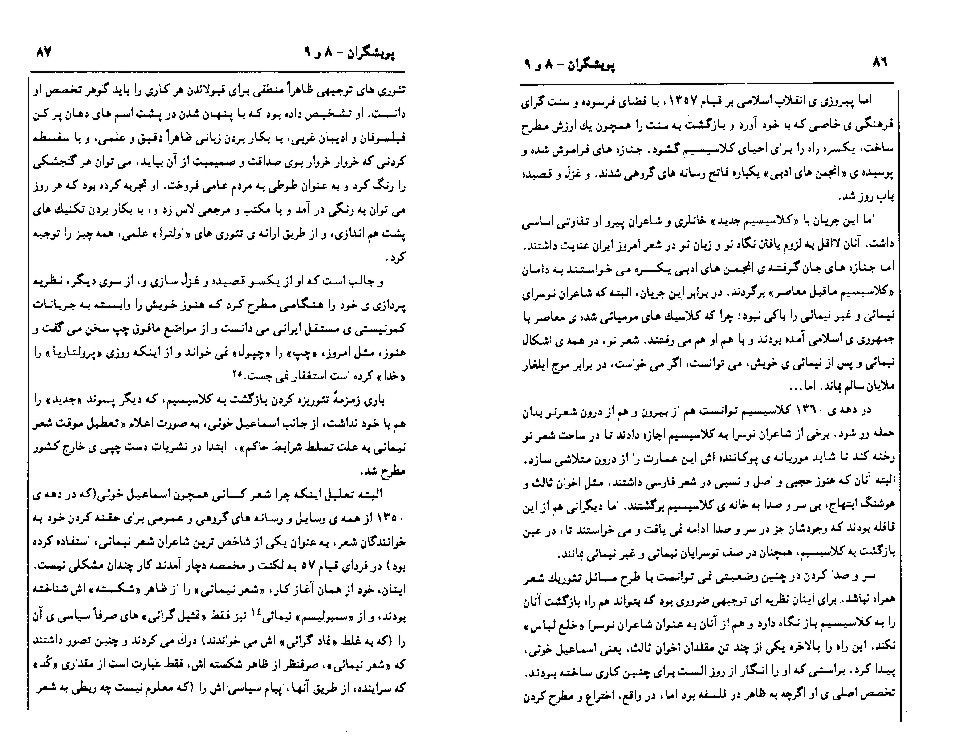 ۸۶
پویشگران - ۸ و ۹
اما پیروزی ی انقلاب اسلامی بر قیام ۱۳۵۷، با فضای فرسوده و سنت گرای
فرهنگی ی خاصی که با خود آورد و بازگشت به سنت را همچون یک ارزش مطرح
ساخت، یکسره راه را برای احیای کلاسیسیم گشود. جنازه های فراموش شده و
پوسیده ی «انجمن های ادبی» یکباره فاتح رسانه های گروهی شدند. و غزل و قصیده
باب روز شد.
اما این جریان با «کلاسیسیم جدید» خانلری و شاعران پیرو او تفاوتی اساسی
داشت. آنان لااقل به لزوم یافتن نگاه نو و زبان نو در شعر امروز ایران عنایت داشتند.
اما جنازه های جان گرفته ی انجمن های ادبی یکسره می خواستند به دامان
«کلاسیسیم ماقبل معاصر» برگردند. در برابر این جریان، البته که شاعران نوسرای
نیمائی و غیر نیمائی را باکی نبود؛ چرا که کلاسیك های مومیائی شده ی معاصر با
جمهوری ی اسلامی آمده بودند و با هم او هم می رفتند. شعر نو، در همه ی اشکال
نیمائی و پس از نیمائی ی خویش، می توانست، اگر می خواست، در برابر موج ایلغار
ملایان سالم بماند. اما...
در دهه ی ۱۳۶۰ کلاسیسیم توانست هم از بیرون و هم از درون شعرنو بدان
حمله ور شود. برخی از شاعران نوسرا به کلاسیسیم اجازه دادند تا در ساحت شعر نو
رخنه کند تا شاید موریانه ی پوکاننده اش این عمارت را از درون متلاشی سازد.
البته آنان که هنوز حجبی و اصل و نسبی در شعر فارسی داشتند، مثل اخوان ثالث و
هوشنگ ابتهاج، بی سر و صدا به خانه ی کلاسیسیم برگشتند. اما دیگرانی هم از این
قافله بودند که وجودشان جز در سر و صدا ادامه نمی یافت و می خواستند تا، در عین
بازگشت به کلاسیسیم، همچنان در صف نوسرایان نیمائی و غیر نیمائی بمانند.
سر و صدا کردن در چنین وضعیتی نمی توانست با طرح مسائل تئوریك شعر
همراه نباشد. برای اینان نظریه ای توجیهی ضروری بود که بتواند هم راه بازگشت آنان
را به کلاسیسیم باز نگاه دارد و هم از آنان به عنوان شاعران نوسرا «خلع لباس»
نکند. این راه را بالاخره یکی از چند تن مقلدان اخوان ثالث، یعنی اسماعیل خوئی،
پیدا کرد. براستی که او را انگار از روز الست برای چنین کاری ساخته بودند.
تخصص اصلی ی او اگرچه به ظاهر در فلسفه بود اما، در واقع، اختراع و مطرح کردن
پویشگران - ۸ و ۹
۸۷
تئوری های توجیهی ظاهراً منطقی برای قبولاندن هر کاری را باید گوهر تخصص او
دانست. او تشخیص داده بود که با پنهان شدن در پشت اسم های دهان پر کن
فیلسوفان و ادیبان غربی، با بکار بردن زبانی ظاهراً دقیق و علمی، و با سفسطه
کردنی که خروار خروار بوی صداقت و صمیمیت از آن بیاید، می توان هر گنجشکی
را رنگ کرد و به عنوان طوطی به مردم عامی فروخت. او تجربه کرده بود که هر روز
می توان به رنگی در آمد و با مکتب و مرجعی لاس زد و، با بکار بردن تکنیك های
پشت هم اندازی، و از طریق ارائه ی تئوری های «ولترا» علمی، همه چیز را توجیه
کرد.
و جالب است که او از یکسو قصیده و غزل سازی و، از سوی دیگر، نظریه
پردازی ی خود را هنگامی مطرح کرد که هنوز خویش را وابسته به جریانات
کمونیستی ی مستقل ایرانی می دانست و از مواضع مافوق چپ سخن می گفت و
هنوز، مثل امروز، «چپ» را «چپول» نمی خواند و از اینکه روزی «پرولتاریا» را
«خدا» کرده است استغفار نمی جست.
باری زمزمهٔ تئوریزه کردن بازگشت به کلاسیسیم، که دیگر پسوند «جدید» را
هم با خود نداشت، از جانب اسماعیل خوئی، به صورت اعلام «تعطیل موقت شعر
نیمائی به علت تسلط شرایط حاکم»، ابتدا در نشریات دست چپی ی خارج کشور
مطرح شد.
البته تعلیل اینکه چرا شعر کسانی همچون اسماعیل خوئی(که در دهه ی
۱۳۵۰ از همه ی وسایل و رسانه های گروهی و عمومی برای حقنه کردن خود به
خوانندگان شعر، به عنوان یکی از شاخص ترین شاعران شعر نیمائی، استفاده کرده
بود) در فردای قیام ۵۷ به لکنت و مخمصه دچار آمدند کار چندان مشکلی نیست.
اینان، خود از همان آغاز کار، «شعر نیمائی» را از ظاهر «شکسته» اش شناخته
بودند، و از «سمبولیسم» نیمائی۱۴ نیز فقط «تمثیل گرائی» های صرفاً سیاسی ی آن
را (که به غلط «نماد گرائی» اش می خواندند) درك می کردند و چنین تصور داشتند
که «شعر نیمائی»، صرفنظر از ظاهر شکسته اش، فقط عبارت است از مقداری «کُد»
که سراینده، از طریق آنها، پیام سیاسی اش را (که معلوم نیست چه ربطی به شعر